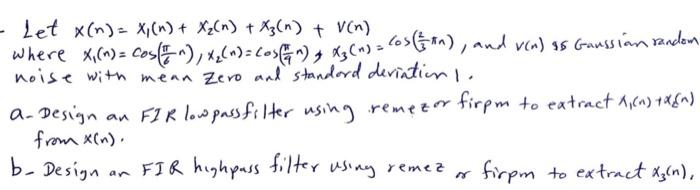 - Let x(n) = x₁(n) + x₂(n) + x₃(n) + v(n)
where x₁(n) = cos(π/6 n), x₂(n) = cos(π/4 n) & x₃(n) = cos(2/3 πn), and v(n) is Gaussian random
noise with mean zero and standard deviation 1.
a- Design an FIR lowpass filter using remez or firpm to extract x₁(n)+x₂(n)
from x(n).
b- Design an FIR highpass filter using remez or firpm to extract x₃(n),